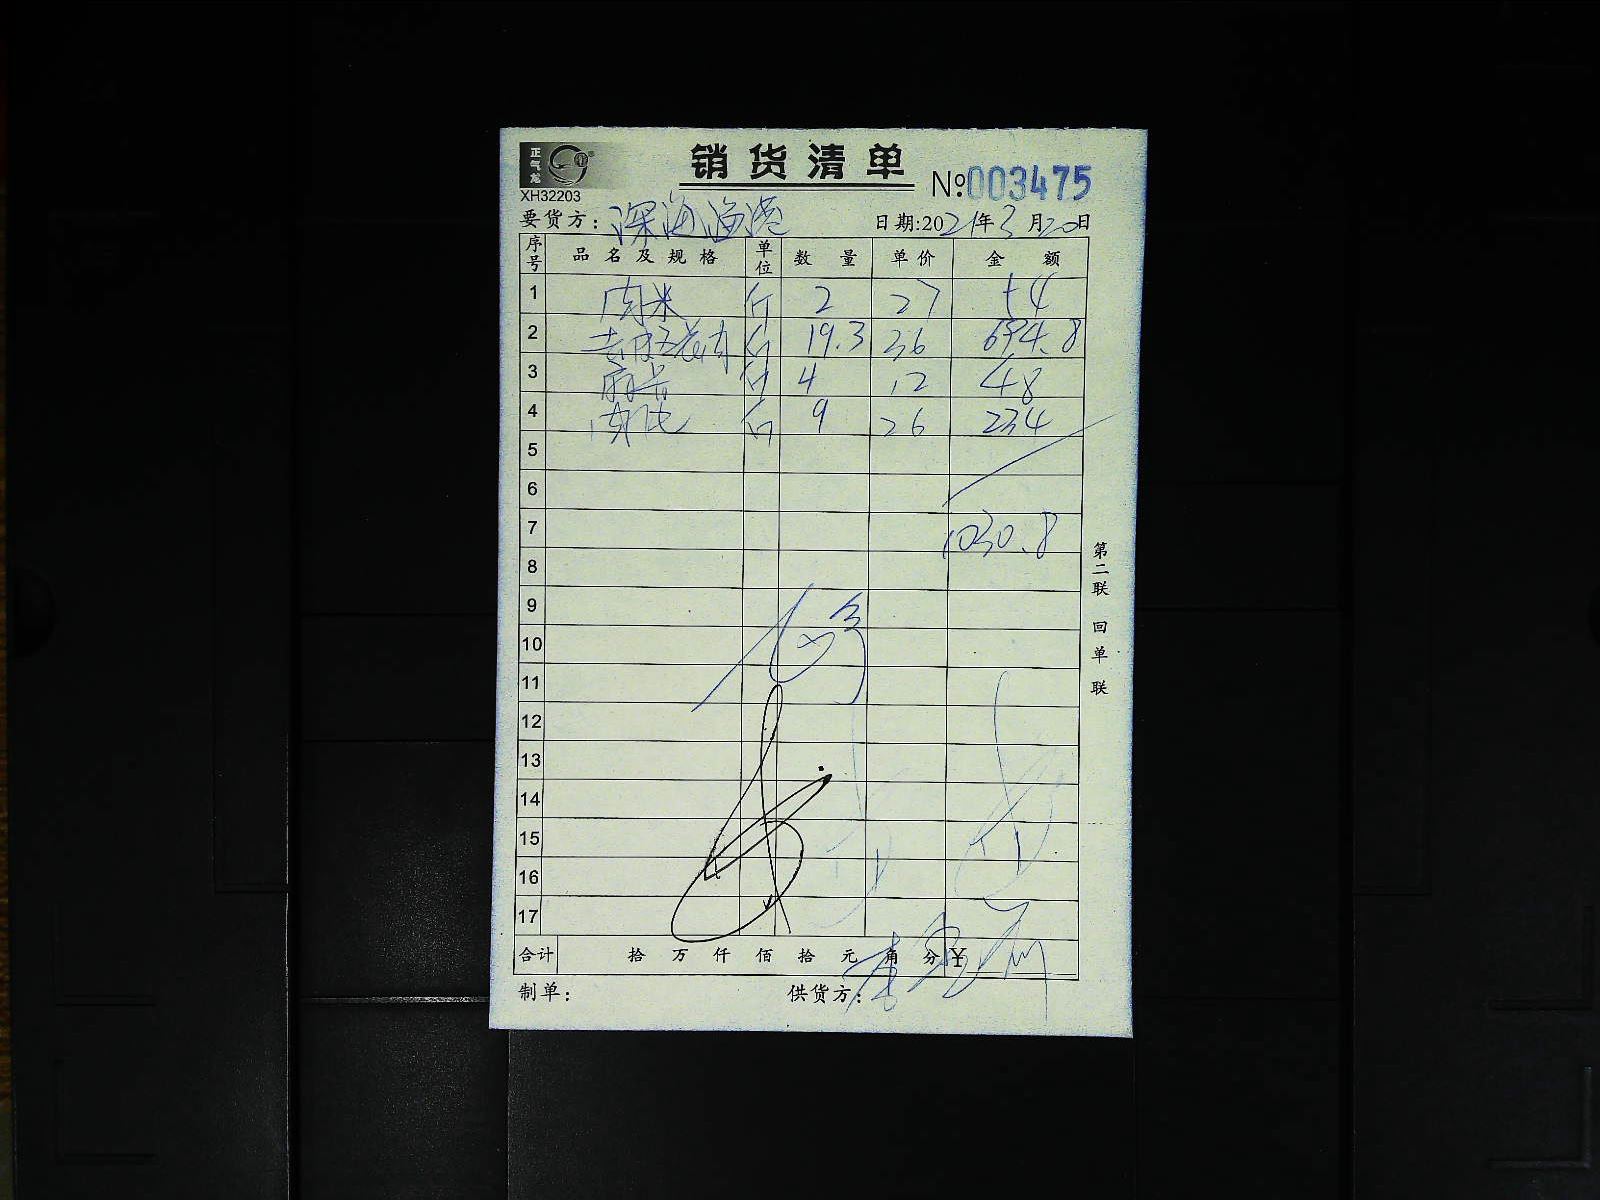 正气龙
销货清单
XH32203
№003475
要货方：深海渔港 日期:2021年3月20日
序号 品名及规格 单位 数量 单价 金额
1 肉米 斤 2 27 54
2 去皮五花肉 斤 19.3 36 694.8
3 斤 4 12 48
4 斤 9 26 234
5
6
7 1030.8
8
9
10
11
12
13
14
15
16
17
合计 拾万仟佰拾元角分￥
制单： 供货方：
第二联 回单联